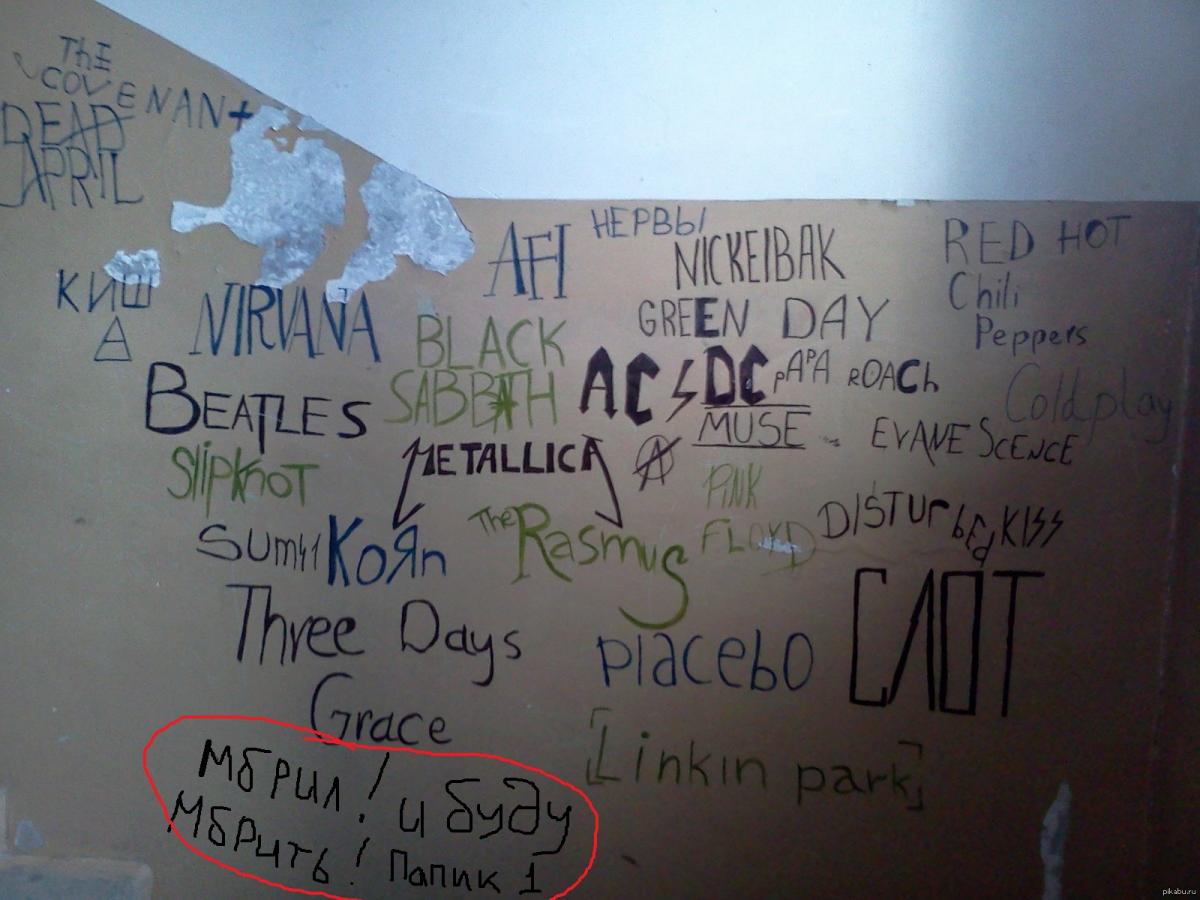 ThE
COVENANT
DEAD
APRIL
НЕРВЫ
AFI
NICKElBAK
RED HOT
Chili
Peppers
КИШ
А
NIRVANA
GREEN DAY
BLACK
SABBATH
AC⚡DC
pAPA ROACh
Coldplay
BEATLES
MUSE
EVANESCENCE
SlipKnoT
METALLICA
PiNK
FLOYD
DISTURbEd
KISS
SUM41
KoЯn
The Rasmus
Three Days
Grace
PlAcEbO
СЛОТ
[Linkin park]
Мбрил! и буду
Мбрить! Папик 1
pikabu.ru